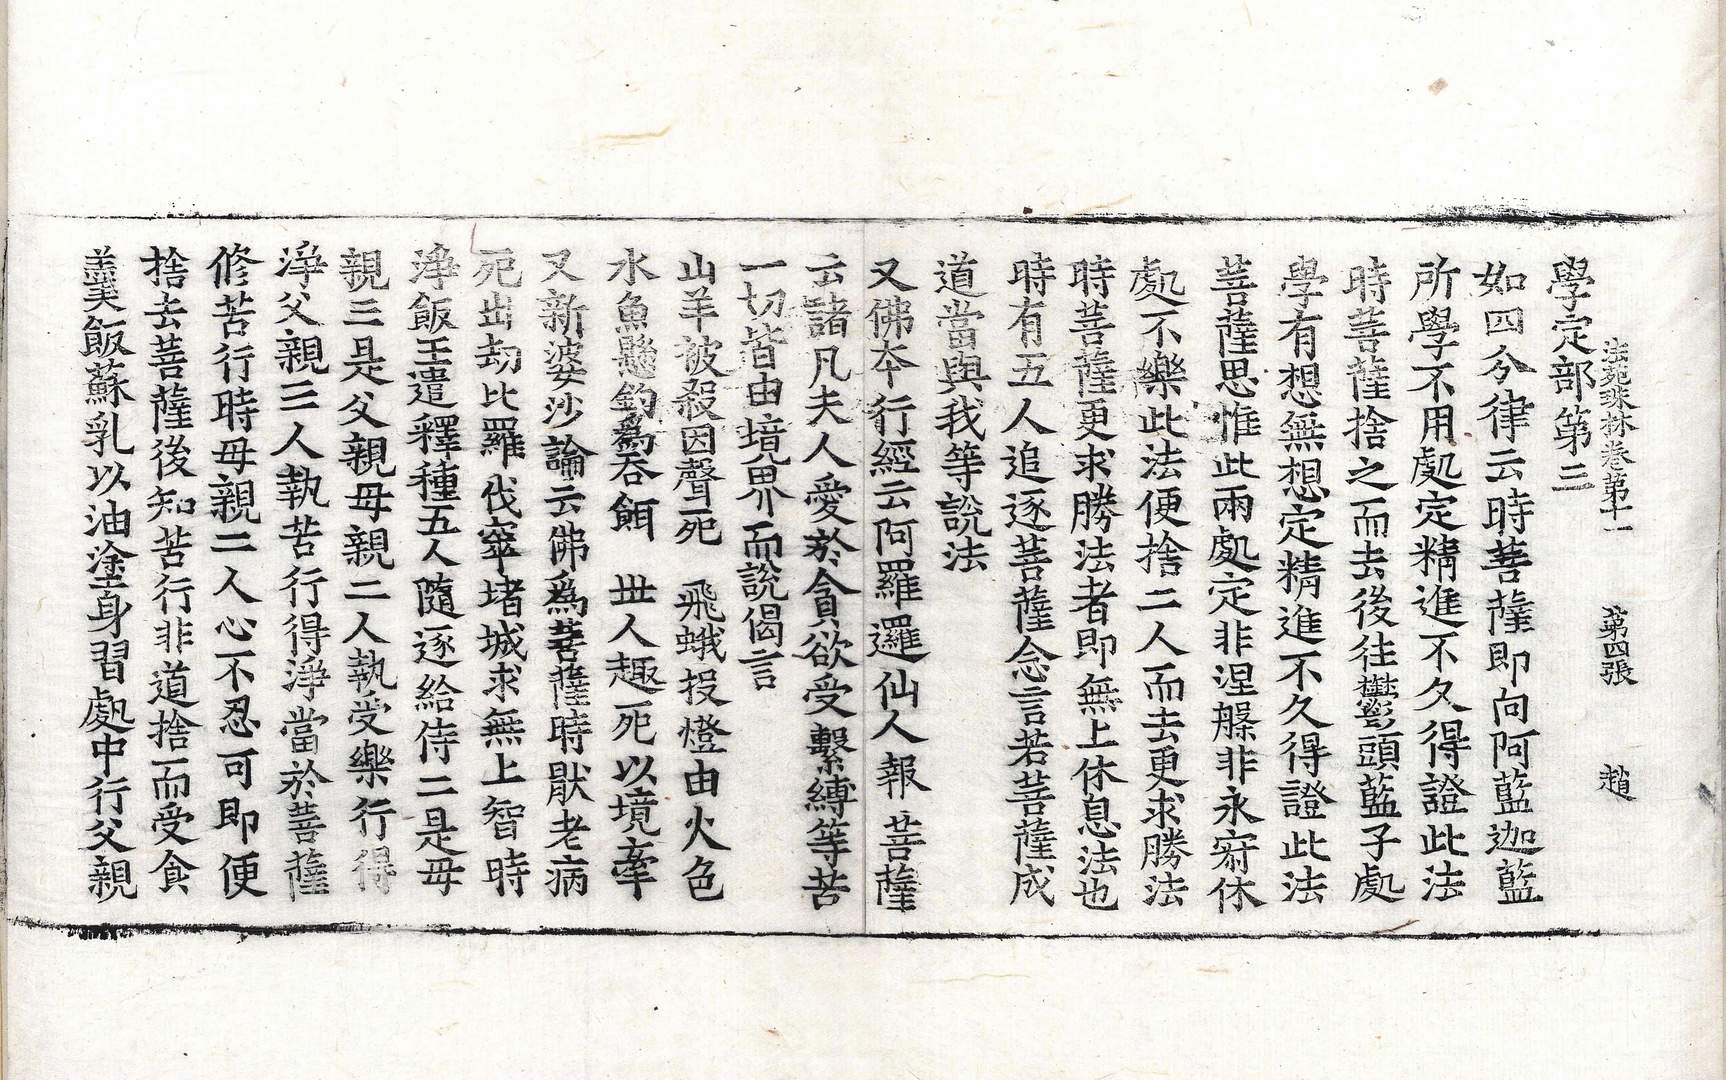 法苑珠林卷第十一 第四張 趙
學定部第三
如四分律云時菩薩即向阿藍迦藍
所學不用處定精進不久得證此法
時菩薩捨之而去後往欝頭藍子處
學有想無想定精進不久得證此法
菩薩思惟此兩處定非涅槃非永寂休
處不樂此法便捨二人而去更求勝法
時菩薩更求勝法者即無上休息法也
時有五人追逐菩薩念言若菩薩成
道當與我等說法
又佛本行經云阿羅邏仙人報菩薩
云諸凡夫人愛於貪欲受繫縛等苦
一切皆由境界而說偈言
山羊被殺因聲死 飛蛾投燈由火色
水魚懸釣爲吞餌 世人趣死以境牽
又新婆沙論云佛爲菩薩時厭老病
死出劫比羅伐窣堵城求無上智時
淨飯王遣釋種五人隨逐給侍二是母
親三是父親母親二人執受樂行得
淨父親三人執苦行得淨當於菩薩
修苦行時母親二人心不忍可即便
捨去菩薩後知苦行非道捨而受食
羹飯蘇乳以油塗身習處中行父親